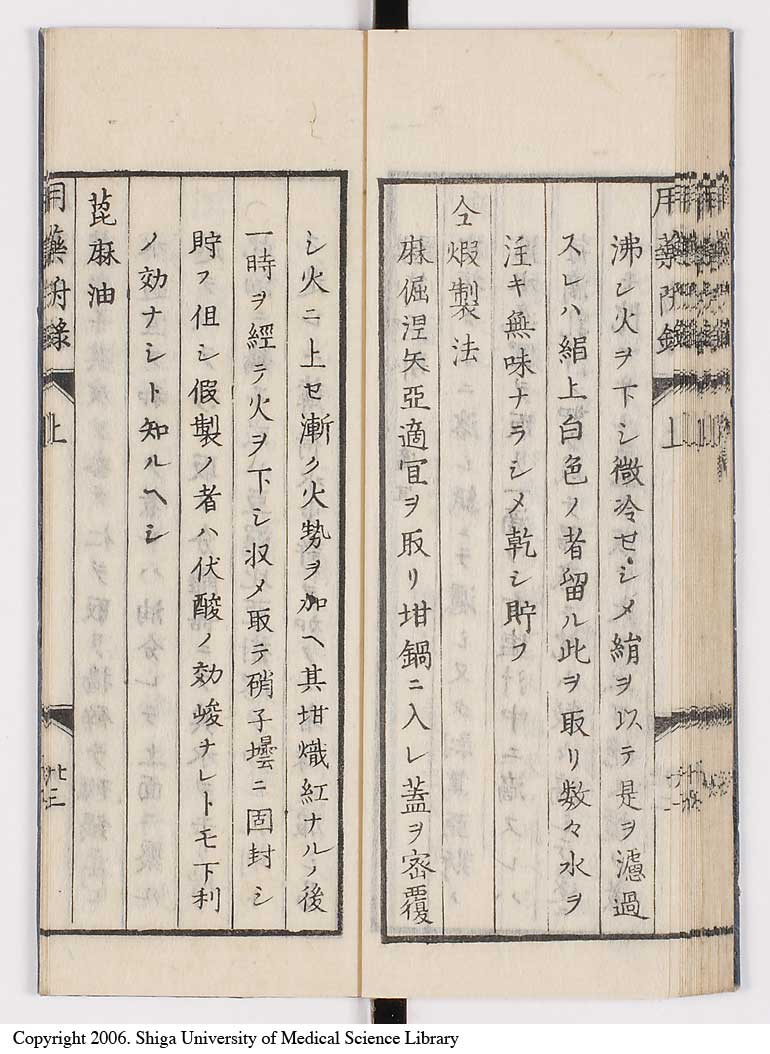 用藥附録 上
沸シ火ヲ下シ微冷セシメ絹ヲ以テ是ヲ濾過
スレハ絹上白色ノ者留ル此ヲ取リ数々水ヲ
注キ無味ナラシメ乾シ貯フ
仝煆製法
麻倔涅矢亞適宜ヲ取リ坩鍋ニ入レ蓋ヲ密覆
シ火ニ上セ漸ク火勢ヲ加ヘ其坩熾紅ナルノ後
一時ヲ經テ火ヲ下シ収メ取テ硝子壜ニ固封シ
貯フ但シ假製ノ者ハ伏酸ノ効峻ナレトモ下利
ノ効ナシト知ルヘシ
蓖麻油
用藥附録 上
Copyright 2006. Shiga University of Medical Science Library